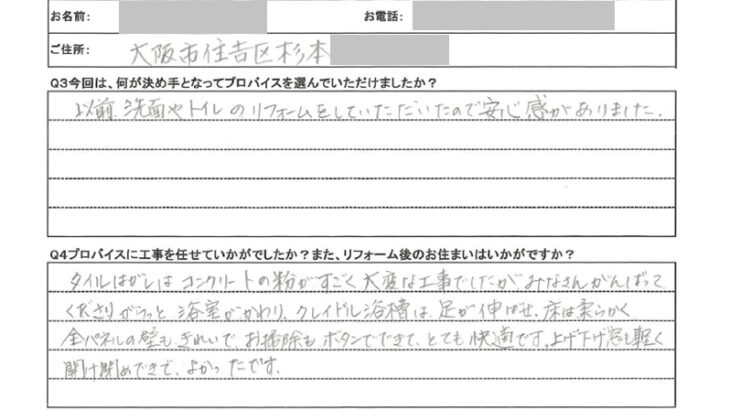 お名前: お電話:
ご住所: 大阪市住吉区杉本
Q3今回は、何が決め手となってプロバイスを選んでいただけましたか?
以前、洗面やトイレのリフォームをしていただいたので安心感がありました。
Q4プロバイスに工事を任せていかがでしたか?また、リフォーム後のお住まいはいかがですか?
タイルはがしはコンクリートの粉がすごく大変な工事でしたがみなさんがんばって
くださりがらっと浴室がかわり、クレイドル浴槽は、足が伸ばせ、床は柔らかく
全パネルの壁もきれいで、お掃除もボタンでできて、とても快適です。上げ下げ窓も軽く
開け閉めできて、よかったです。